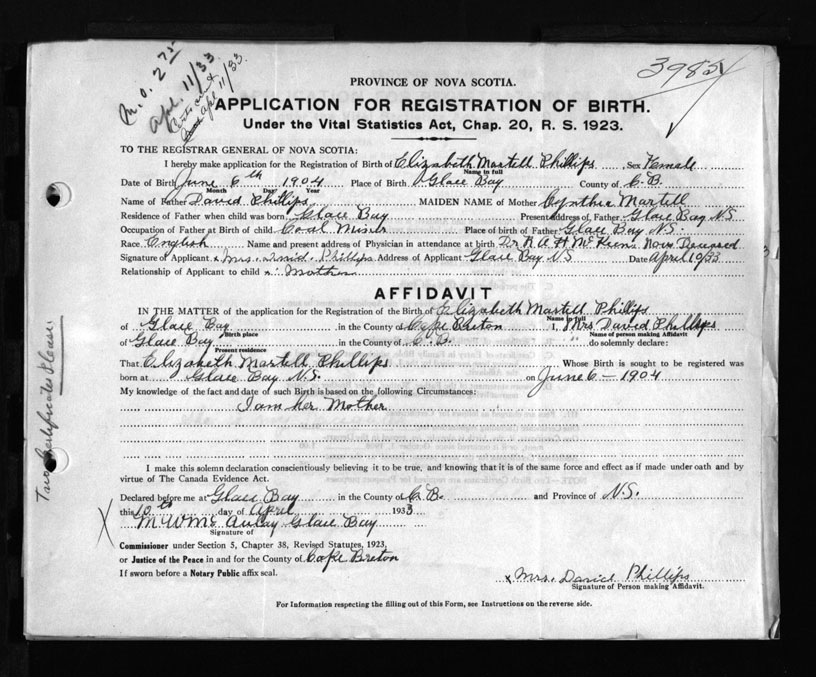 M.O. 2 75
Apl. 11/33
Apl 11/33
3982
PROVINCE OF NOVA SCOTIA.
APPLICATION FOR REGISTRATION OF BIRTH.
Under the Vital Statistics Act, Chap. 20, R. S. 1923.
TO THE REGISTRAR GENERAL OF NOVA SCOTIA:
I hereby make application for the Registration of Birth of Elizabeth Martell Phillips Sex Female
Name in full
Date of Birth June 6th 1904 Place of Birth Glace Bay County of C.B.
Month Day Year
Name of Father David Phillips MAIDEN NAME of Mother Cynthia Martell
Residence of Father when child was born Glace Bay Present Address of Father Glace Bay N.S
Occupation of Father at Birth of child Coal Miner Place of birth of Father Glace Bay N.S.
Race English Name and present address of Physician in attendance at birth Dr. Now Deceased
Signature of Applicant x Mrs. David Phillips Address of Applicant Glace Bay N.S Date April 10/33
Relationship of Applicant to child x Mother
AFFIDAVIT
IN THE MATTER of the application for the Registration of the Birth of Elizabeth Martell Phillips
Name in full
of Glace Bay in the County of Cape Breton I, Mrs David Phillips
Birth place Name of person making Affidavit
of Glace Bay in the County of C.B. do solemnly declare:
Present residence
That Elizabeth Martell Phillips Whose Birth is sought to be registered was
born at Glace Bay N.S. on June 6 - 1904
My knowledge of the fact and date of such Birth is based on the following Circumstances:
I am her Mother
I make this solemn declaration conscientiously believing it to be true, and knowing that it is of same force and effect as if made under oath and by
virtue of The Canada Evidence Act.
Declared before me at Glace Bay in the County of C.B. and Province of N.S.
this 10th day of April 1933
X M W Mc Aulay Glace Bay
Signature of
Commissioner under Section 5, Chapter 38, Revised Statutes, 1923,
or Justice of the Peace in and for the County of Cape Breton
If sworn before a Notary Public affix seal.
x Mrs. David Phillips
Signature of Person making Affidavit.
For Information respecting the filling out of this Form, see Instructions on the reverse side.
Two Certificates Please.